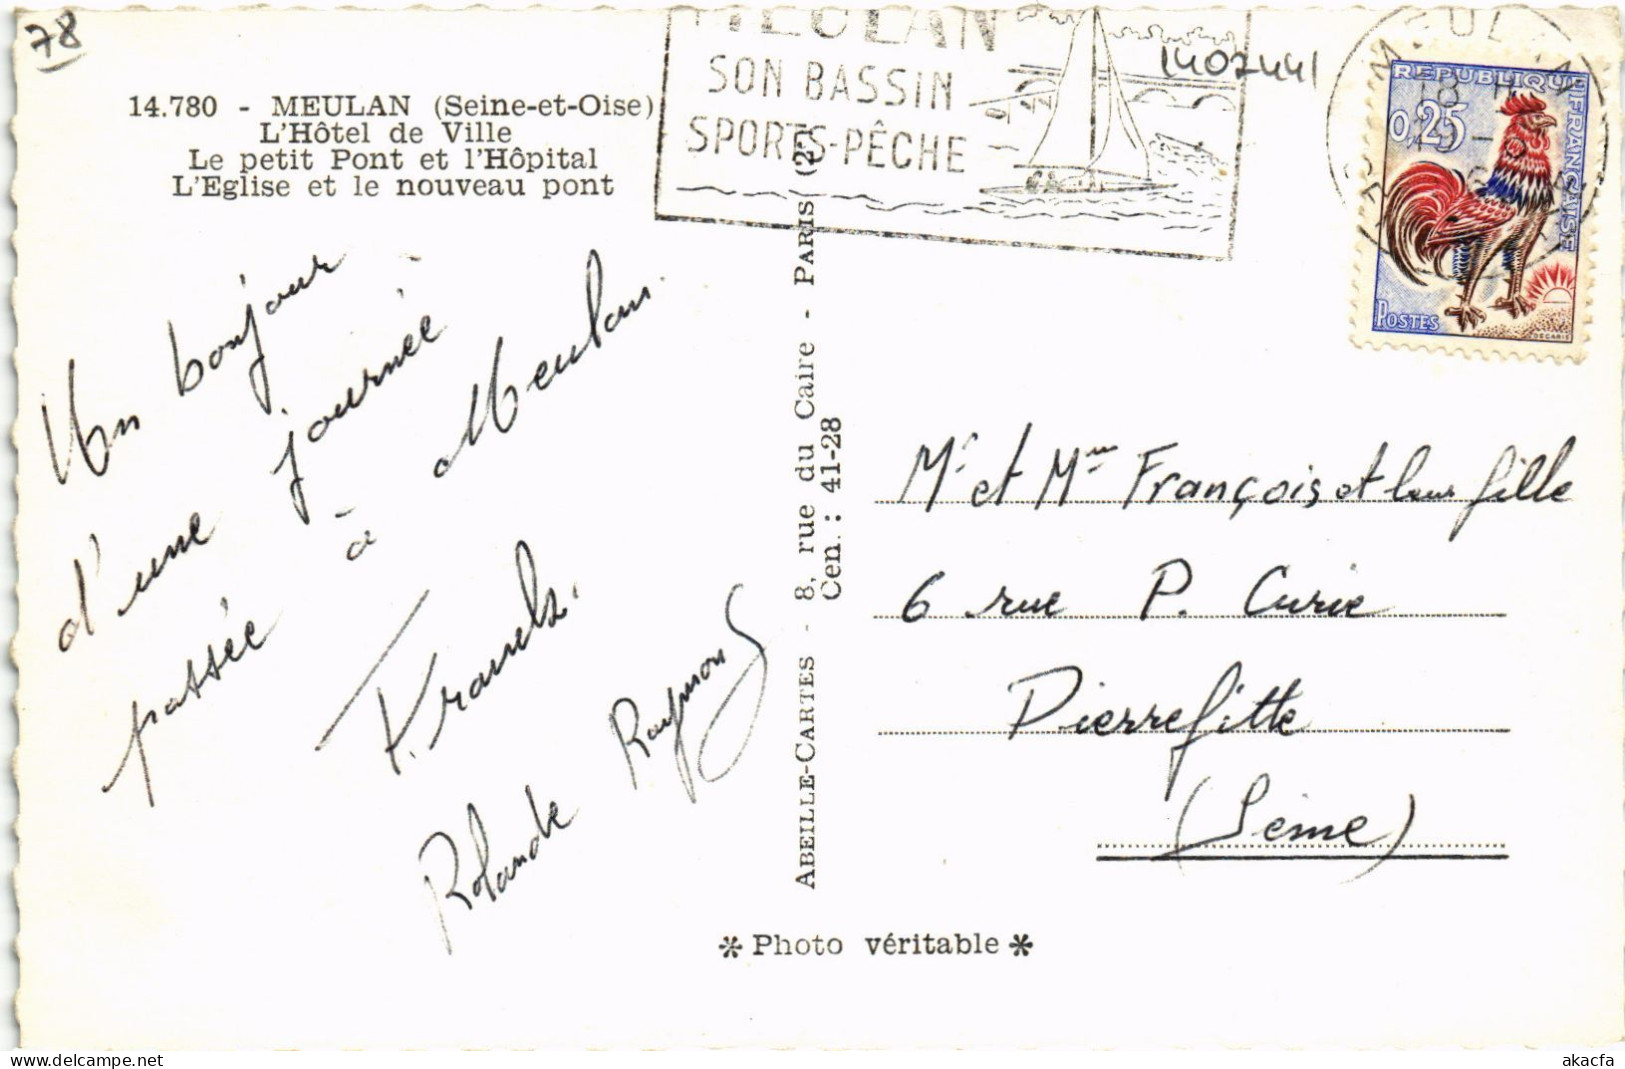 78
14.780 - MEULAN (Seine-et-Oise)
L'Hôtel de Ville
Le petit Pont et l'Hôpital
L'Eglise et le nouveau pont
MEULAN
SON BASSIN
SPORTS-PÊCHE
1407441
REPUBLIQUE FRANÇAISE
0,25
POSTES
DECARIS
Un bonjour
d'une journée
passée à Meulan.
Rolande Raymond
ABEILLE-CARTES - 8, rue du Caire - PARIS (2e)
Cen. : 41-28
Mr et Mme François et leur fille
6 rue P. Curie
Pierrefitte
(Seine)
* Photo véritable *
akacfa
My-images-for.delcampe.net